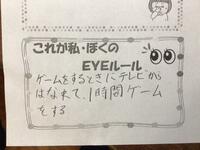 これが私・ぼくの
EYEルール
ゲームをするときにテレビから
はなれて、1時間ゲーム
をする